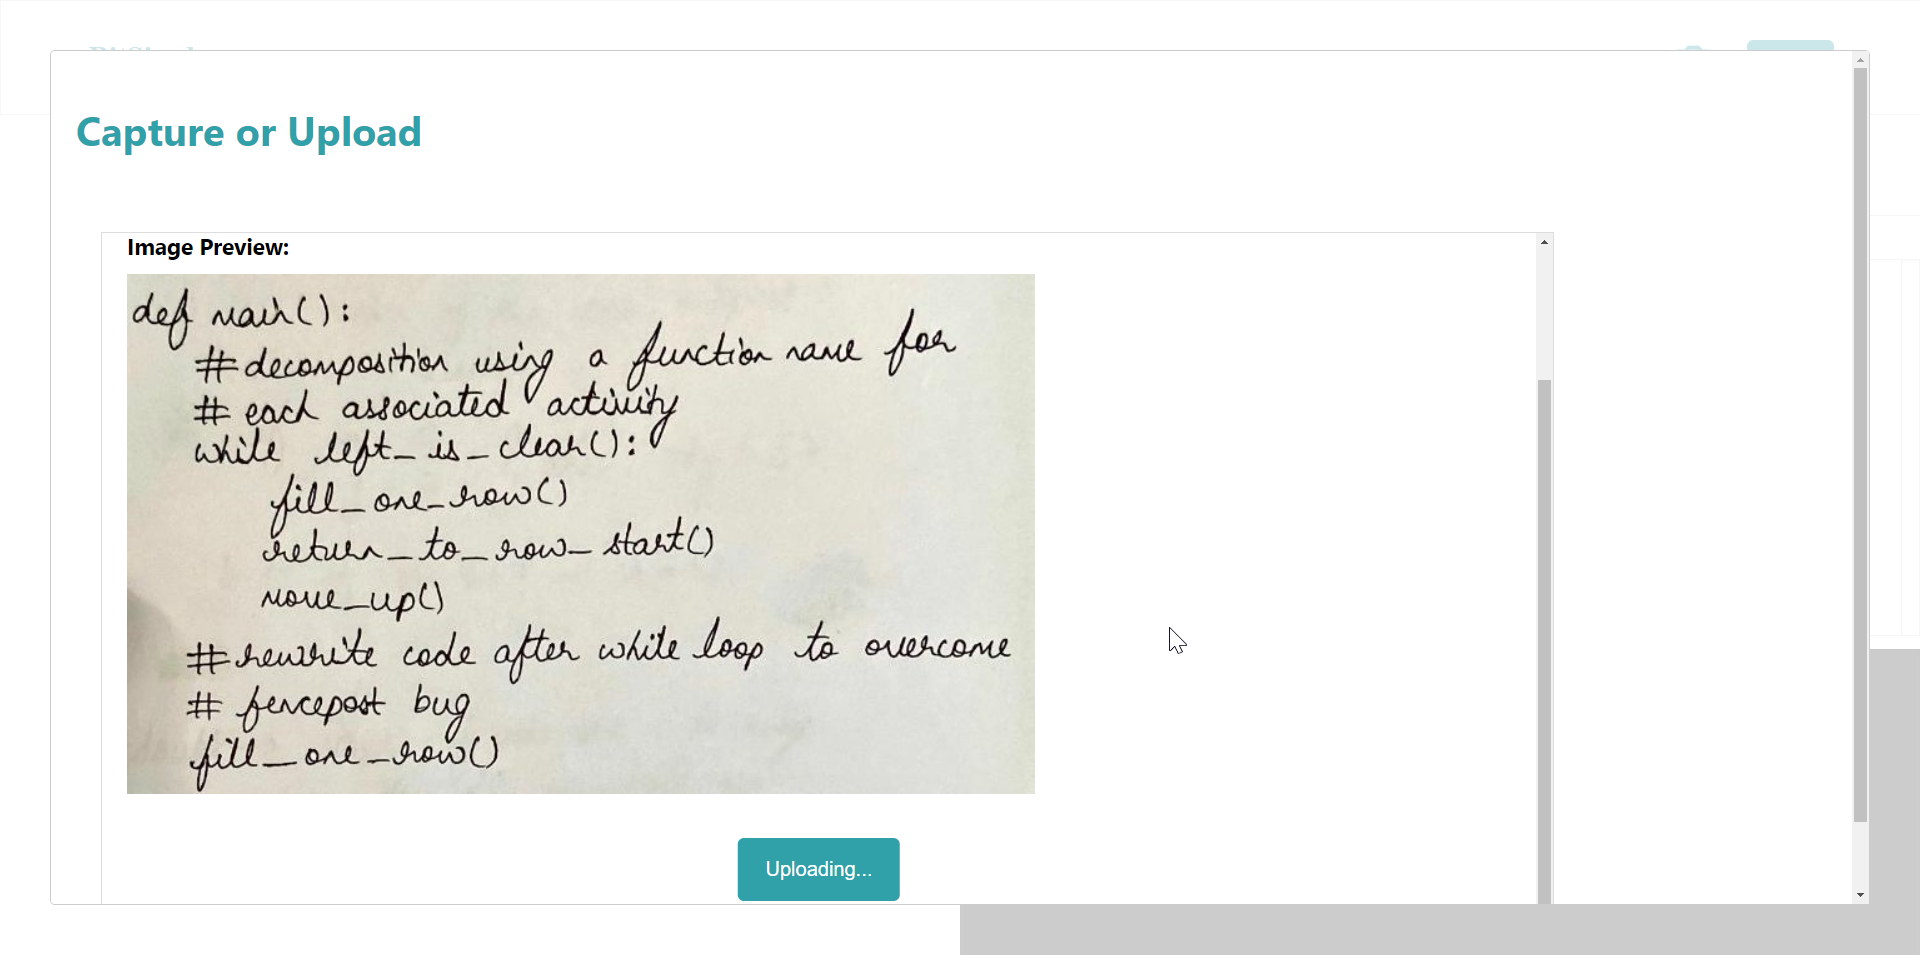 Capture or Upload
Image Preview:
def main():
#decomposition using a function name for
# each associated activity
while left_is_clear():
fill_one_row()
return_to_row_start()
move_up()
#rewrite code after while loop to overcome
# fencepost bug
fill_one_row()
Uploading...